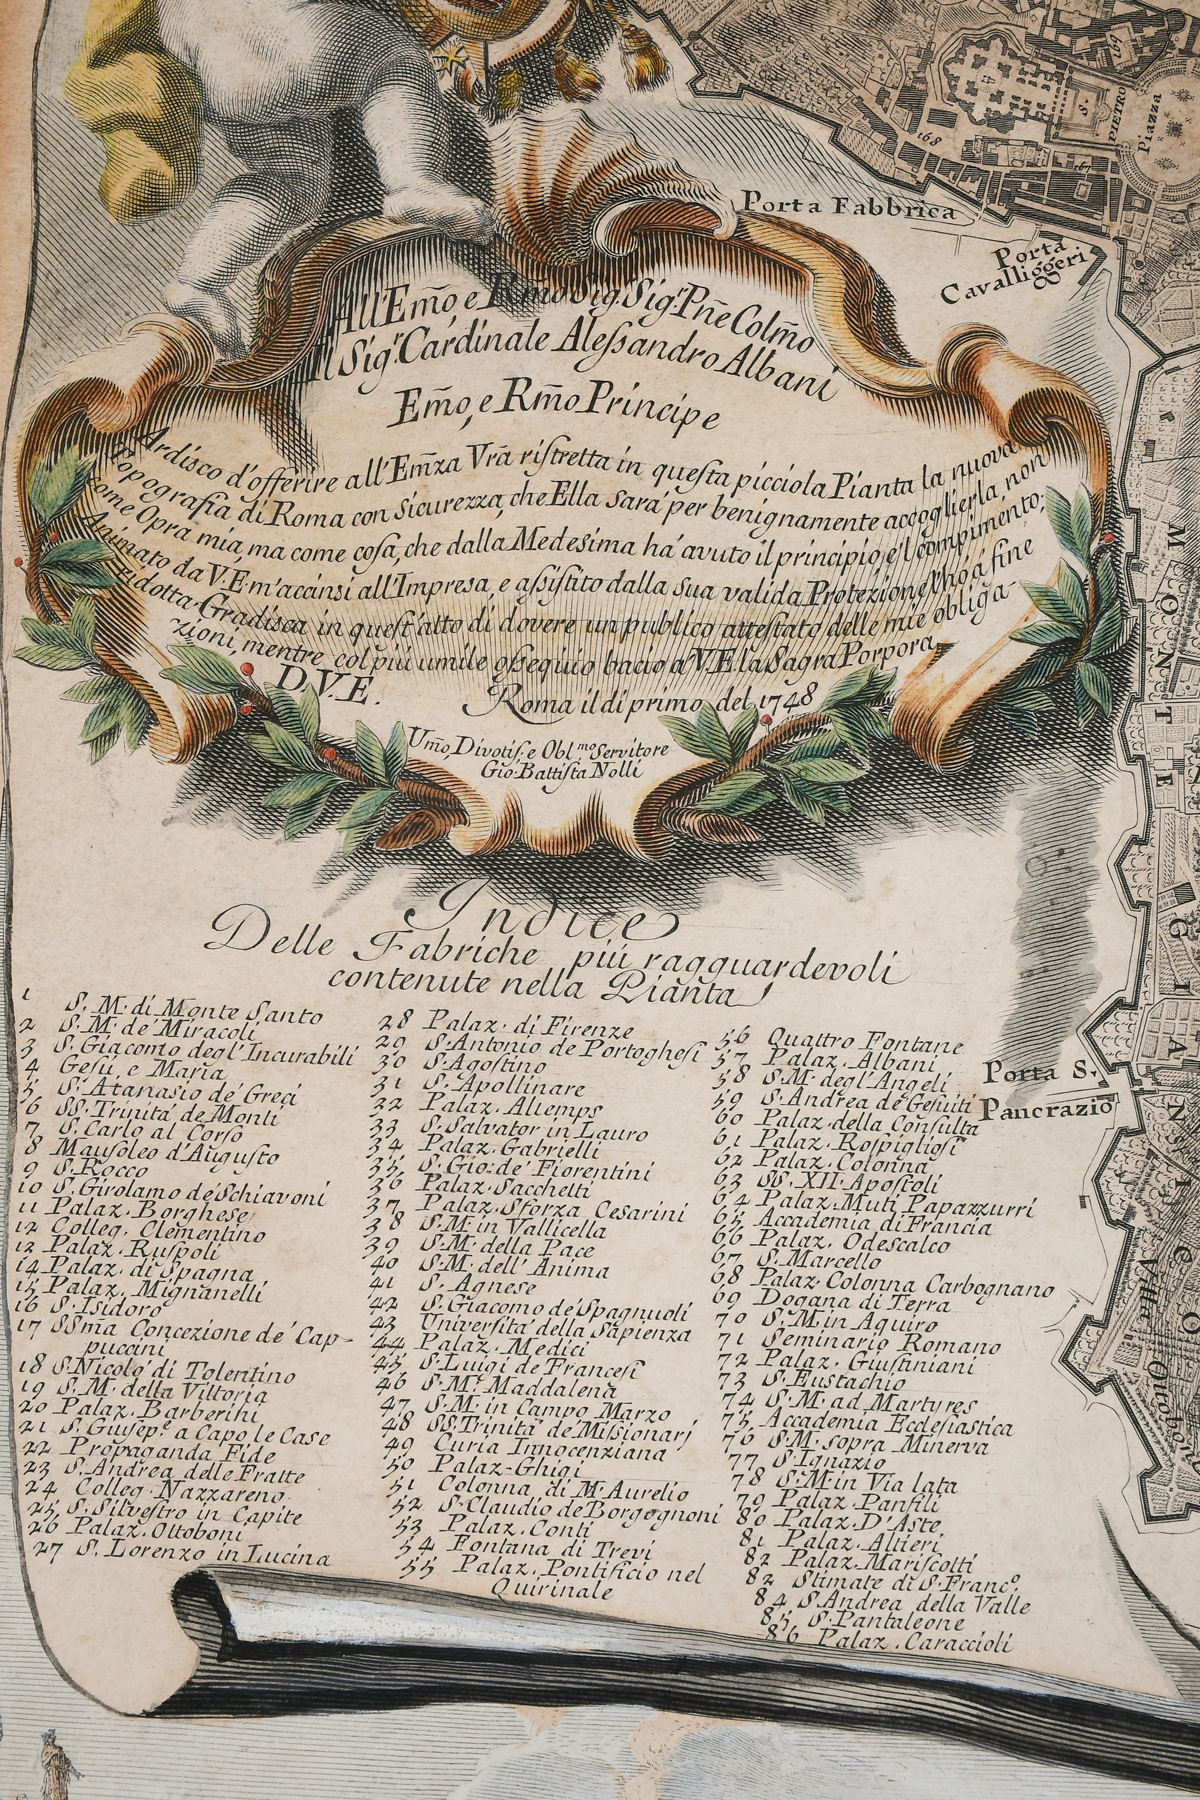 All'Em̃o, e Rm̃o Sig. Sigr. Pñe Colm̃o
Il Sigr. Cardinale Alessandro Albani
Em̃o, e Rm̃o Principe
Ardisco d'offerire all'Em̃za Vrã ristretta in questa picciola Pianta la nuova
Topografia di Roma con sicurezza, che Ella sarà per benignamente accoglierla, non
come Opra mia, ma come cosa, che dalla Medesima hà avuto il principio, e'l compimento.
Animato da V.E. m'accinsi all'Impresa, e assistito dalla sua valida Protezione l'hò a fine
ridotta. Gradisca in quest'atto di dovere un publico attestato delle mie obliga-
zioni, mentre col più umile ossequio bacio a V.E. la Sagra Porpora.
D.V.E.
Roma il di primo del 1748
Um̃o, Divotis., e Obl.mo Servitore
Gio. Battista Nolli
Indice
Delle Fabriche più ragguardevoli
contenute nella Pianta
1 S. M. di Monte Santo
2 S. M. de' Miracoli
3 S. Giacomo degl' Incurabili
4 Gesù, e Maria
5 S. Atanasio de' Greci
6 SS. Trinità de Monti
7 S. Carlo al Corso
8 Mausoleo d'Augusto
9 S. Rocco
10 S. Girolamo de Schiavoni
11 Palaz. Borghese
12 Colleg. Clementino
13 Palaz. Ruspoli
14 Palaz. di Spagna
15 Palaz. Mignanelli
16 S. Isidoro
17 SSma Concezione de' Cap-
puccini
18 S. Nicolò di Tolentino
19 S. M. della Vittoria
20 Palaz. Barberini
21 S. Giusep. a Capo le Case
22 Propaganda Fide
23 S. Andrea delle Fratte
24 Colleg. Nazzareno
25 S. Silvestro in Capite
26 Palaz. Ottoboni
27 S. Lorenzo in Lucina
28 Palaz. di Firenze
29 S. Antonio de Portoghesi
30 S. Agostino
31 S. Apollinare
32 Palaz. Altemps
33 S. Salvator in Lauro
34 Palaz. Gabrielli
35 S. Gio: de' Fiorentini
36 Palaz. Sacchetti
37 Palaz. Sforza Cesarini
38 S. M. in Vallicella
39 S. M. della Pace
40 S. M. dell' Anima
41 S. Agnese
42 S. Giacomo de Spagnuoli
43 Università della Sapienza
44 Palaz. Medici
45 S. Luigi de Francesi
46 S. M. Maddalena
47 S. M. in Campo Marzo
48 SS. Trinità de Missionarj
49 Curia Innocenziana
50 Palaz. Ghigi
51 Colonna di M. Aurelio
52 S. Claudio de Borgognoni
53 Palaz. Conti
54 Fontana di Trevi
55 Palaz. Pontificio nel
Quirinale
56 Quattro Fontane
57 Palaz. Albani
58 S. M. degl' Angeli
59 S. Andrea de Gesuiti
60 Palaz. della Consulta
61 Palaz. Rospigliosi
62 Palaz. Colonna
63 SS. XII. Apostoli
64 Palaz. Muti Papazzurri
65 Accademia di Francia
66 Palaz. Odescalco
67 S. Marcello
68 Palaz. Colonna Carbognano
69 Dogana di Terra
70 S. M. in Aquiro
71 Seminario Romano
72 Palaz. Giustiniani
73 S. Eustachio
74 S. M. ad Martyres
75 Accademia Ecclesiastica
76 S. M. sopra Minerva
77 S. Ignazio
78 S. M. in Via lata
79 Palaz. Panfili
80 Palaz. D'Aste
81 Palaz. Altieri
82 Palaz. Mariscotti
83 Stimate di S. Franc.o
84 S. Andrea della Valle
85 S. Pantaleone
86 Palaz. Caraccioli
Porta Fabbrica
Porta
Cavalliggeri
S. PIETRO
Piazza
167
168
167
MONTE GIANICO
Porta S.
Pancrazio
Villa